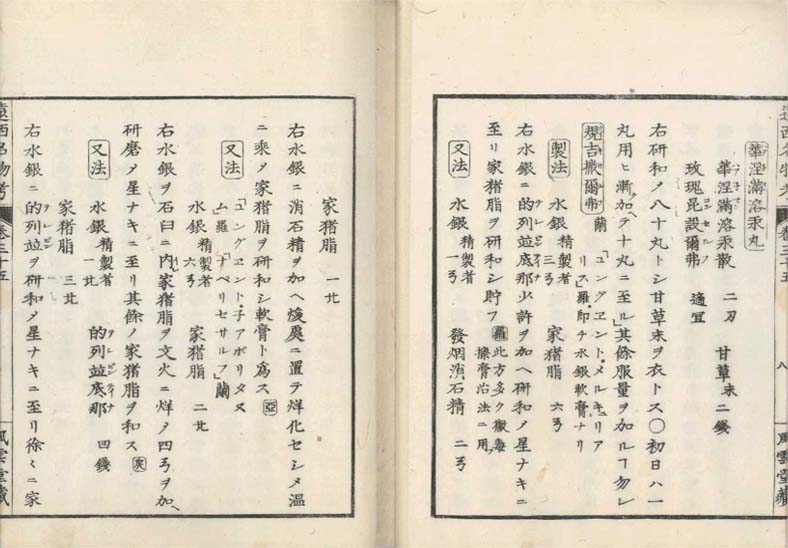 遠西名物考 卷三十五 八 風雲堂藏
華涅滿溶汞丸
華涅滿溶汞散 二刃 甘草末 二錢
玫瑰昆設爾弗 適宜
右研和メ八十丸トシ甘草末ヲ衣トス○初日ハ一
丸用ヒ漸加テ十丸ニ至ル其餘服量ヲ加ルヿ勿レ
蘭「ユングエント・メルキュリア
リス」羅・即チ水銀軟膏ナリ
製法 水銀 精製者 三ヲ 家猪脂 六ヲ
右水銀ニ的列並底那少許ヲ加ヘ研和メ星ナキニ
至リ家猪脂ヲ研和シ貯フ 羅 此方多ク黴毒擦膏治法ニ用
又法 水銀 精製者 一ヲ 發烟消石精 二ヲ
家猪脂 一𠦄
右水銀ニ消石精ヲ加ヘ煖處ニ置テ烊化セシメ温
ニ乘メ家猪脂ヲ研和シ軟膏ト爲ス 亞
又法 「ユングエント・子アポリタヌ
ム羅「ナペリセサルフ」蘭
水銀 精製者 六ヲ 家猪脂 二𠦄
右水銀ヲ石臼ニ内レ家猪脂ヲ文火ニ烊メ四ヲヲ加ヘ
研磨メ星ナキニ至リ其餘ノ家猪脂ヲ和ス
又法 水銀 精製者 一𠦄 的列並底那 四錢
家猪脂 三𠦄
右水銀ニ的列並ヲ研和メ星ナキニ至リ徐々ニ家
遠西名物考 卷三十五 風雲堂藏